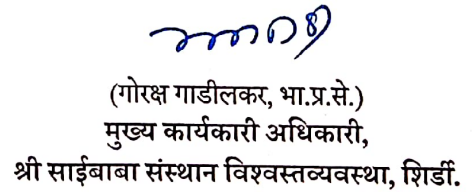 (गोरक्ष गाडीलकर, भा.प्र.से.)
मुख्य कार्यकारी अधिकारी,
श्री साईबाबा संस्थान विश्‍वस्तव्यवस्था, शिर्डी.